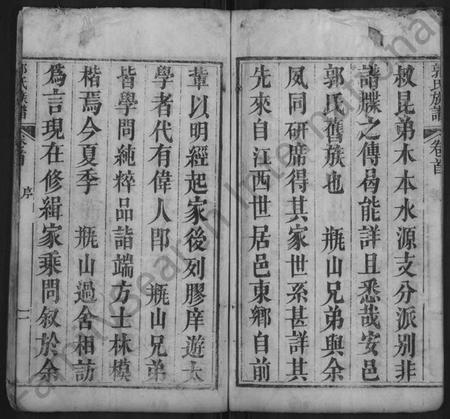 郭氏族譜 卷首
敘昆弟木本水源支分派別非
譜牒之傳曷能詳且悉哉安邑
郭氏舊族也 瓶山兄弟與余
夙同研席得其家世系甚詳其
先來自江西世居邑東鄉自前
輩以明經起家後列膠庠遊太
學者代有偉人卽 瓶山兄弟
皆學問純粹品詣端方士林模
楷焉今夏季 瓶山過舍相訪
為言現在修緝家乘問叙於余
郭氏族譜 卷首 序 一
FamilySearch International